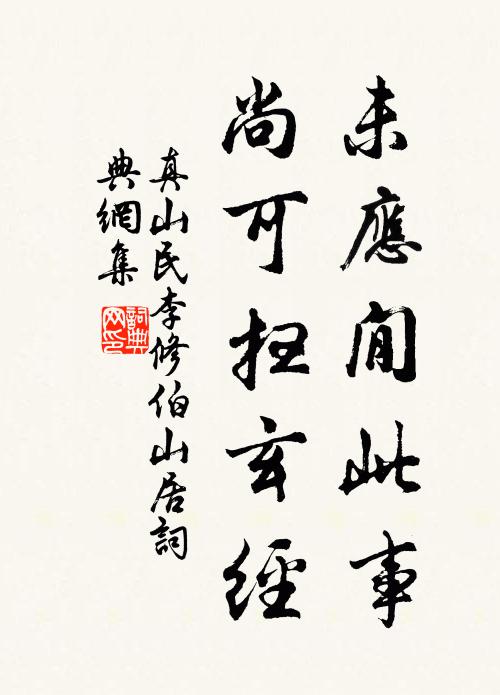 未應閒此事
尚可扭玄經
真山民李修伯山居詞
典網集
詞典
网印